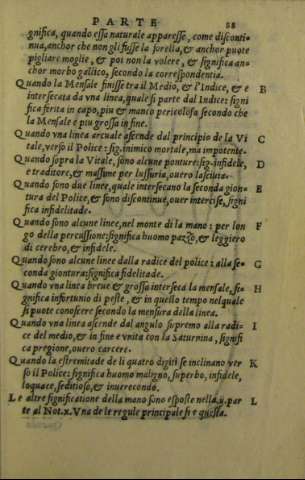 PARTE 28
gnifica, quando essa naturale apparesse, come disconti-
nua, anchor che non gli fusse la sorella, & anchor puote
pigliare moglie, & poi non la volere, & significa an-
chor morbo galico, secondo la correspondentia.
Quando la Mensale finisse tra il Medio, & l'Indice, & e B
intersecata da vna linea, quale si parte dal Indice: signi
fica ferita in capo, piu & mano pericolosa secondo che
la Mensale e piu grossa in fine.
Quando vna linea arcuale ascende dal principio de la Vi C
tale, verso il Police: sig. inimico mortale, ma impotente.
Quando sopra la Vitale, sono alcune ponture: sig. infidele, D
e traditore, & massime per lussuria, ouero lasciuia.
Quando sono due linee, quale intersecano la seconda gion- E
tura del Police, & sono discontinue, ouer intercise, signi
fica infidelitade.
Quando sono alcune linee, nel monte di la mano: per lon F
go della percussione: significa huomo pazzo, & leggiero
di cerebro, & infidele.
Quando sono alcune linee dalla radice del police: alla se- G
conda giontura: significa fidelitade.
Quando vna linea breue & grossa interseca la mensale, si- H
gnifica infortunio di peste, & in quello tempo nel quale
si puote conoscere secondo la mensura della linea.
Quando vna linea ascende dal angulo supremo alla radi- I
ce del medio, & in fine e vnita con la Saturnina, signifi
ca pregione, ouero carcere.
Quando la estremitade de li quatro digiti se inclinano ver K
so il Police: significa huomo maligno, superbo, infidele,
loquace, seditioso, & inuerecondo.
Le altre significatione della mano sono esposte nella par- L
te al Not. x. Vna de le regule principale si e questa.